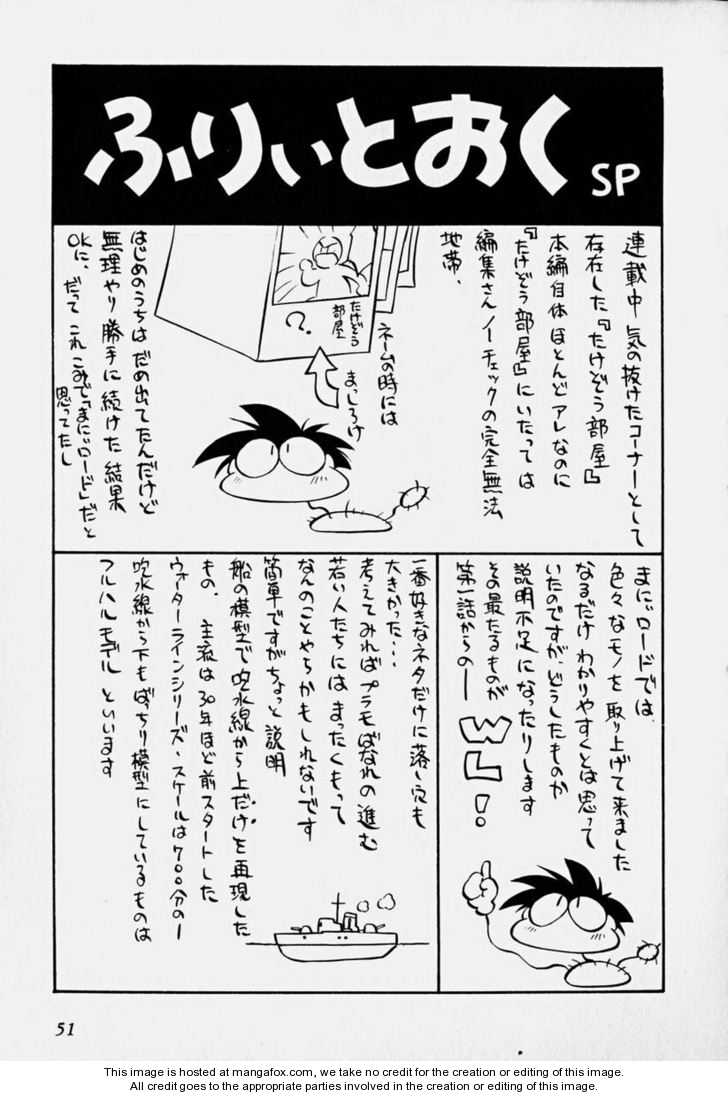 ふりぃとおく SP
連載中 気の抜けたコーナーとして
存在した『たけぞう部屋』
本編自体ほとんどアレなのに
『たけぞう部屋』にいたっては
編集さんノーチェックの完全無法
地帯、
ネームの時には
まっしろけ
たけぞう
部屋
?
はじめのうちはだめ出てたんだけど
無理やり勝手に続けた結果
OKに、だって これ こみで「まに゛ロード」だと
思ってたし
まに゛ロードでは、
色々なモノを取り上げて来ました
なるだけ わかりやすくとは思って
いたのですが、どうしたものか
説明不足になったりします
その最たるものが
第一話からの ー
WL!
一番好きなネタだけに落し穴も
大きかった...
考えてみればプラモばなれの進む
若い人たちには まったくもって
なんのことやらかもしれないです
簡単ですがちょっと説明
船の模型で吹水線から上だけを再現した
もの、主流は30年ほど前スタートした
ウォーターラインシリーズ・スケールは700分の一
吹水線から下もばっちり模型にしているものは
フルハルモデル といいます
51
This image is hosted at mangafox.com, we take no credit for the creation or editing of this image.
All credit goes to the appropriate parties involved in the creation or editing of this image.